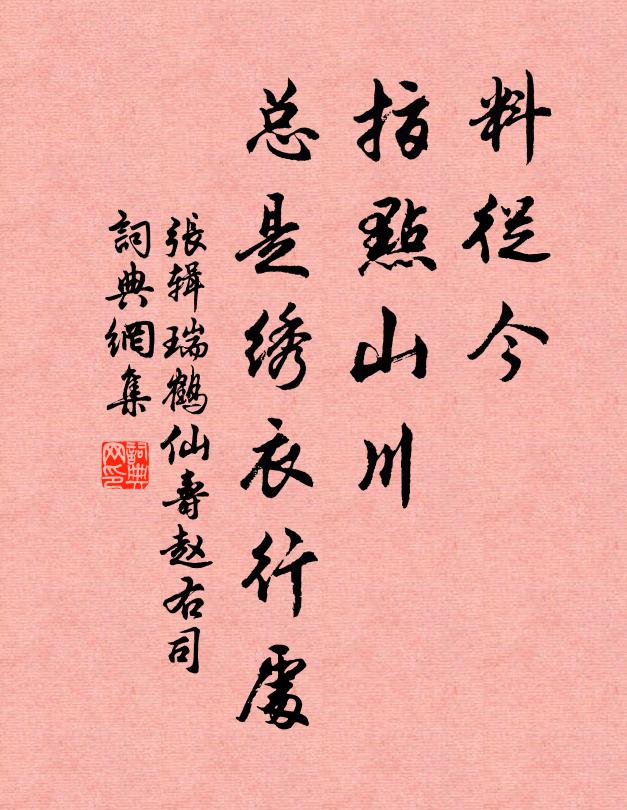 料従今
指點山川
总是绣衣行處
張辑瑞鶴仙壽赵右司
詞典網集
詞典網印